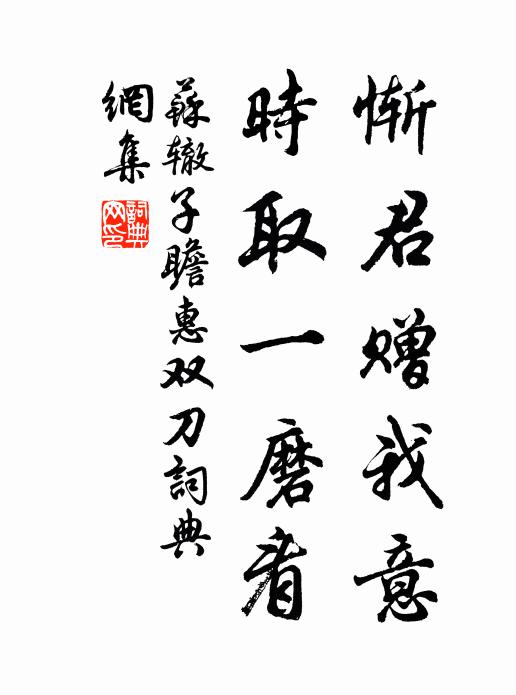 慚君贈我意
時取一磨看
蘇辙子瞻惠双刀詞典
網集
詞典
网印